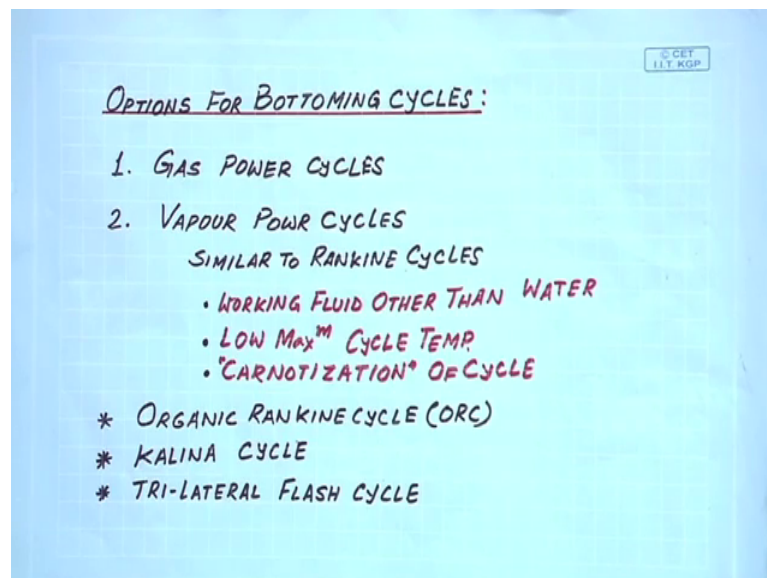 © CET
I.I.T. KGP
OPTIONS FOR BOTTOMING CYCLES:
1. GAS POWER CYCLES
2. VAPOUR POWR CYCLES
SIMILAR TO RANKINE CYCLES
• WORKING FLUID OTHER THAN WATER
• LOW Maxᵐ CYCLE TEMP.
• "CARNOTIZATION" OF CYCLE
* ORGANIC RANKINE CYCLE (ORC)
* KALINA CYCLE
* TRI-LATERAL FLASH CYCLE